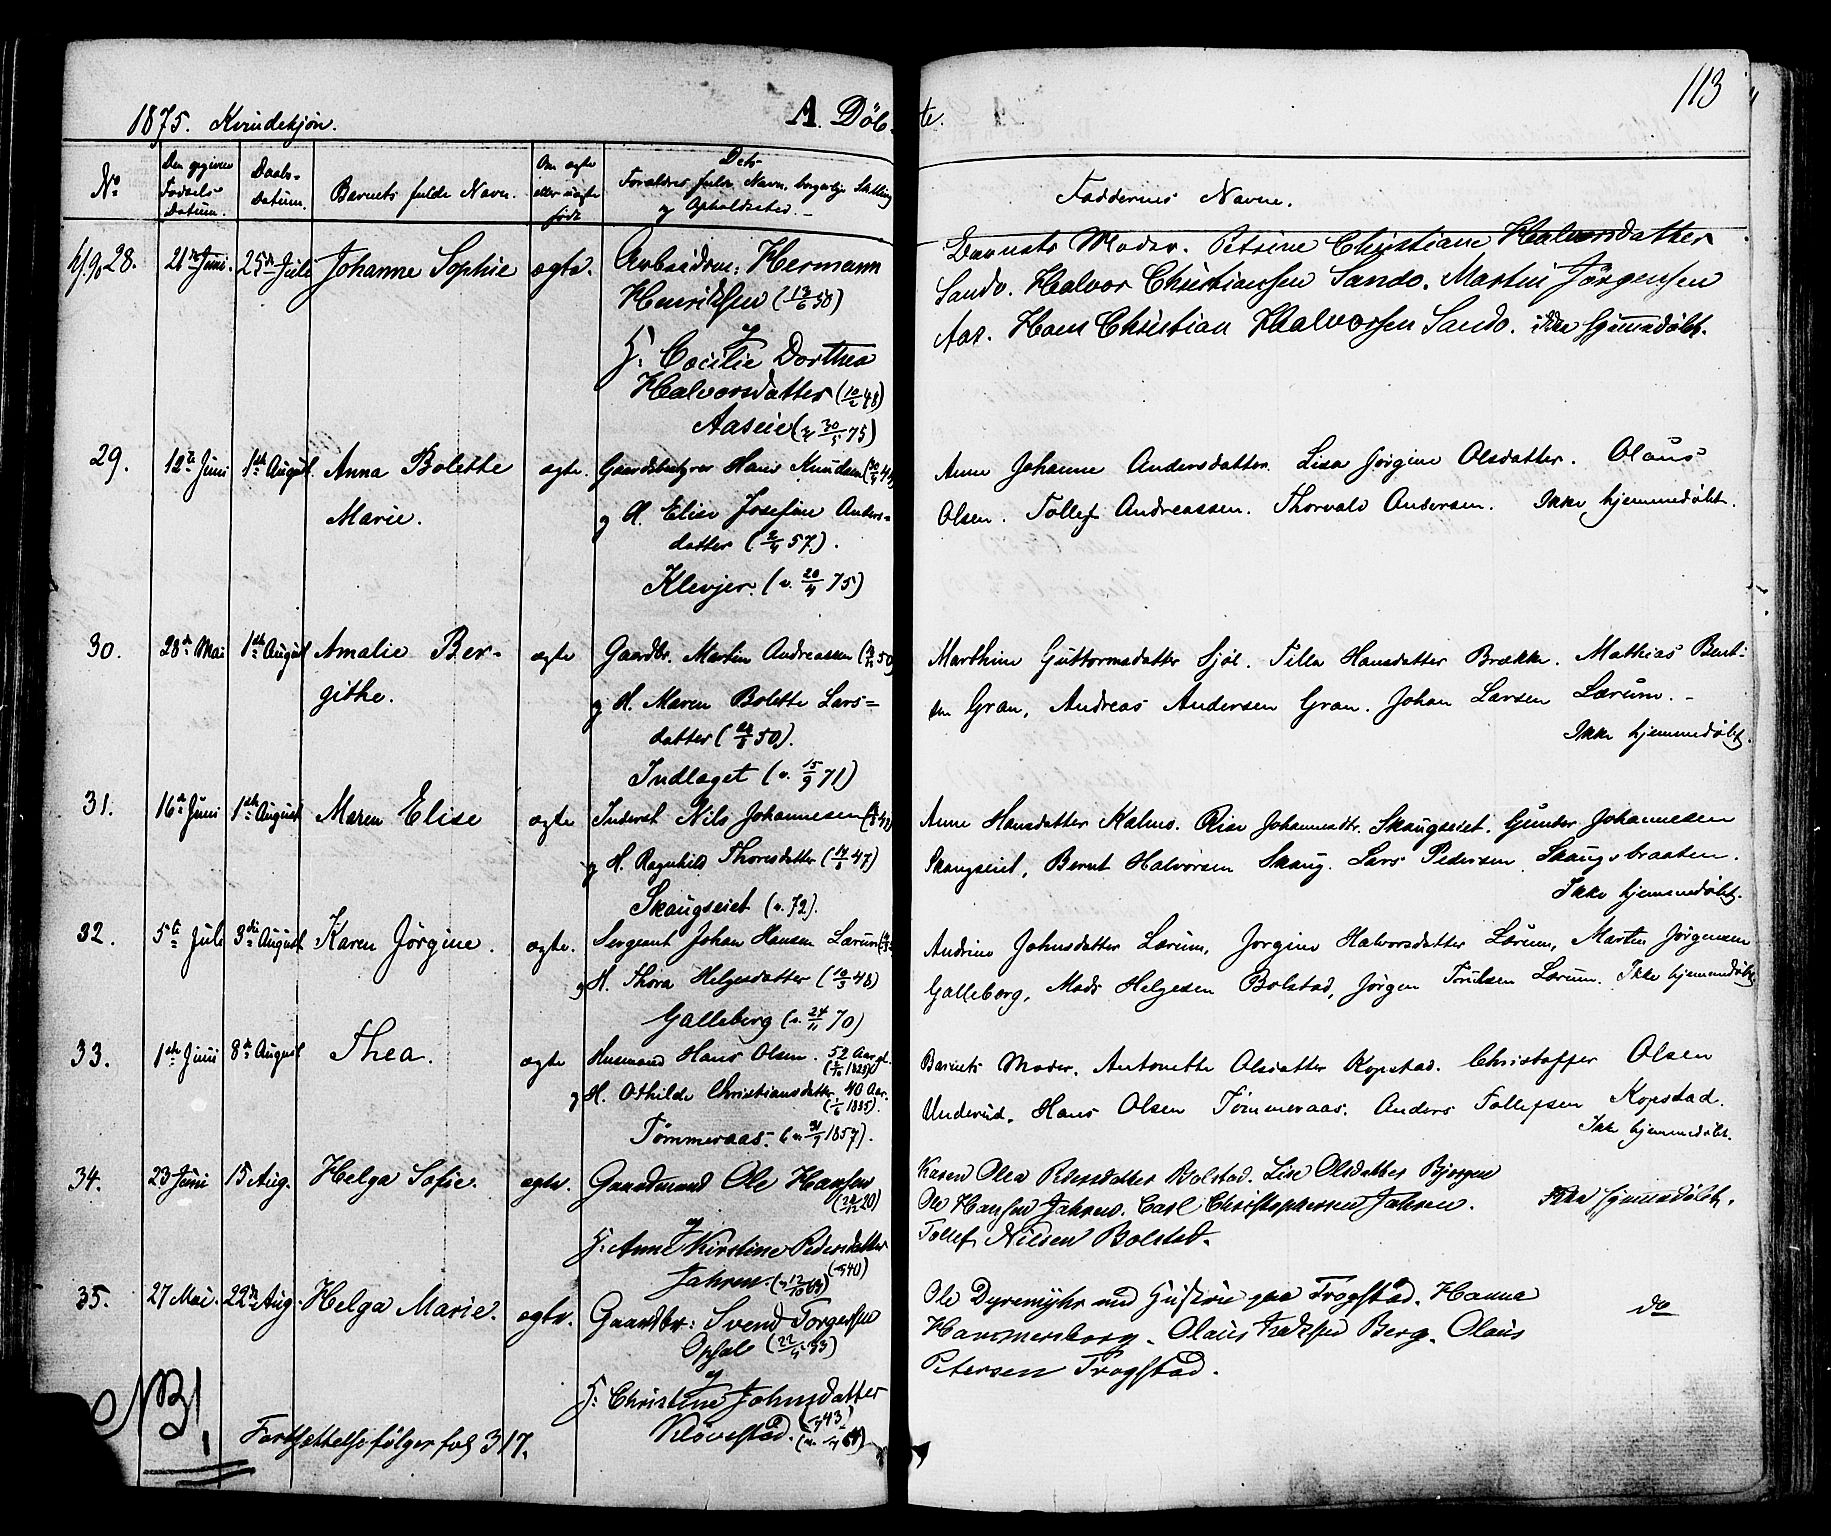 113
1875. Kvindekjøn. A. Døbte.
No
Den opgivne Fødsels-Datum.
Daabs-Datum.
Barnets fulde Navn.
Om ægte eller uægte født
Dets Forældres fulde Navn, borgerlige Stilling og Opholdssted.
Faddernes Navne.
28. 21de Juni. 25de Juli Johanne Sophie ægte.
Arbeidsm: Hermann
Henriksen (13/6 50)
og
H. Cecilie Dorthea
Halvorsdatter (10/2 48)
Aaseie (v. 30/5 75)
Barnets Moder. Petrine Christiane Halvorsdatter
Sando. Halvor Christiansen Sando. Martin Jörgensen
Aas. Hans Christian Halvorsen Sando. ikke hjemmedøbt.
29. 12te Juni 1ste August. Anna Bolette
Marie.
ægte.
Gaardbruger Hans Knudsen
og H. Elise Josefine Anders-
datter (2/4 57).
Klevjer. (v. 20/4 75)
Anne Johanne Andersdatter. Lisa Jørgine Olsdatter. Olaus
Olsen. Tollef Andreassen. Thorvald Andersen. Ikke hjemmedøbt.
30. 28de Mai 1ste August Amalie Ber-
githe.
ægte
Gaardbr. Martin Andreassen
og H. Maren Bolette Lars-
datter (50).
Indlaget (v. 15/9 71)
Marthine Guttormsdatter Sjøl. Tilla Hansdatter Brække. Mathias Bent-
sen Gran, Andreas Andersen Gran. Johan Larsen Lærum. -
Ikke hjemmedøbt.
31. 16de Juni 1ste August Maren Elise ægte
Inderst Nils Johannesen
og H. Ragnhild Thoresdatter (47)
Skaugseiet (v. 72).
Anne Hansdatter Kalmo. Elise Johannesdtr. Skaugseiet. Gunder Johannesen
Skaugseiet, Bernt Halvorsen Skaug. Lars Pedersen Skaugsbraaten.
Ikke hjemmedøbt.
32. 5te Juli 3die August Karen Jørgine. ægte.
Sergeant Johan Hansen Lærum
og H. Thora Helgesdatter (10/3 48)
Galleberg (v. 24/11 70)
Andrine Johnsdatter Lærum, Jørgine Halvorsdatter Lærum, Martin Jørgensen
Galleberg, Mads Helgesen Bolstad, Jørgen Trulsen Lærum. Ikke hjemmedøbt
33. 1ste Juni 8de August Thea. ægte
Husmand Hans Olsen. 52 Aar gl.
og H. Othilde Christiansdatter 40 Aar.
(1/6 1835).
Tømmeraas. (v. 31/7 1857).
Barnets Moder. Antonette Olsdatter Kopstad. Christoffer Olsen
Underud. Hans Olsen Tømmeraas. Anders Tollefsen Kopstad.
Ikke hjemmedøbt.
34. 23 Juni 15 Aug. Helga Sofie. ægte.
Gaardmand Ole Hansen
og
H. Anne Kirstine Pedersdatter
Jahren.
Karen Olea Bolstad. Lise Olsdatter Bjørgen
Ole Hansen Jahren. Carl Christophersen Jahren. Ikke hjemmedøbt.
Tollef Nilsen Bolstad.
35. 27 Mai. 22de Aug. Helga Marie. ægte.
Gaardbr: Svend Torgersen
Opsal
og
H. Christine Johnsdatter
Kløvestad.
Ole Dyremyhr med Hustru paa Trogstad. Hanna
Hammersborg. Olaus Berg. Olaus
Petersen Trogstad.
do
NB!
Fortsættelse følger fol 317.